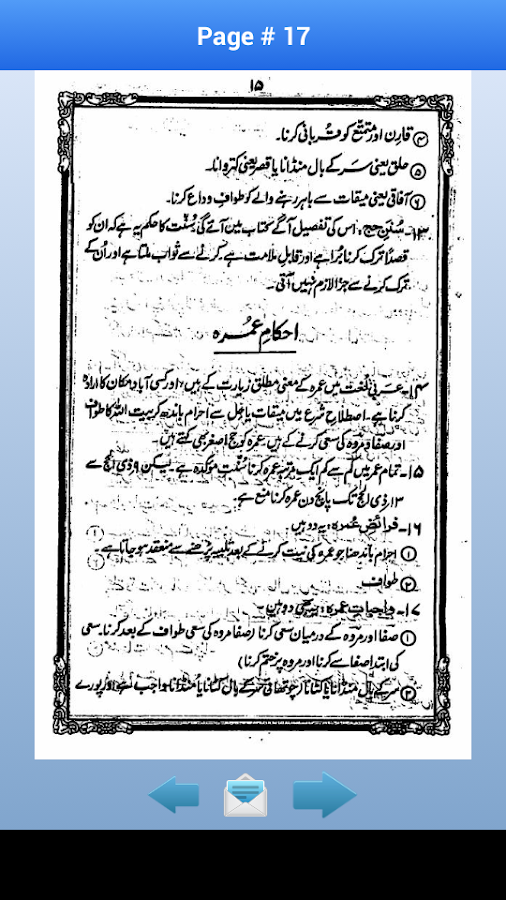 Page # 17
۱۵
④ قارِن اور متمتّع کو قربانی کرنا۔
⑤ حلق یعنی سر کے بال منڈانا یا قصر یعنی کتروانا۔
⑥ آفاقی یعنی میقات سے باہر رہنے والے کو طوافِ وداع کرنا۔
۱۳۔ سُنَنِ حج: اس کی تفصیل آگے کتاب میں آئے گی سُنّت کا حکم یہ ہے کہ ان کو
قصدًا ترک کرنا بُرا ہے اور قابلِ ملامت ہے۔ کرنے سے ثواب ملتا ہے اور اُن کے
ترک کرنے سے جزا لازم نہیں آتی۔
احکامِ عُمرہ
۱۴۔ عربی لُغت میں عمرہ کے معنی مطلق زیارت کے ہیں، اور کسی آباد مکان کا ارادہ
کرنا ہے۔ اصطلاحِ شرع میں میقات یا حِل سے احرام باندھ کر بیت اللہ کا طواف
اور صفا و مروہ کی سعی کرنے کے ہیں۔ عمرہ کو حجِ اصغر بھی کہتے ہیں۔
۱۵۔ تمام عمر میں کم سے کم ایک مرتبہ عمرہ کرنا سُنّتِ مؤکدہ ہے۔ لیکن ۹؍ذی الحج سے
۱۳؍ذی الحج تک پانچ دن عمرہ کرنا منع ہے۔
۱۶۔ فرائضِ عُمرہ: یہ دو ہیں
① احرام باندھنا جو عمرہ کی نیت کرنے کے بعد تلبیہ پڑھنے سے منعقد ہو جاتا ہے۔
② طواف
۱۷۔ واجباتِ عمرہ: یہ بھی دو ہیں۔
① صفا اور مروہ کے درمیان سعی کرنا (صفا مروہ کی سعی طواف کے بعد کرنا۔ سعی
کی ابتدا صفا سے کرنا اور مروہ پر ختم کرنا)
② سر کے بال منڈانا یا کٹانا (چوتھائی سر کے بال کٹانا یا مُنڈانا واجب ہے اور پورے